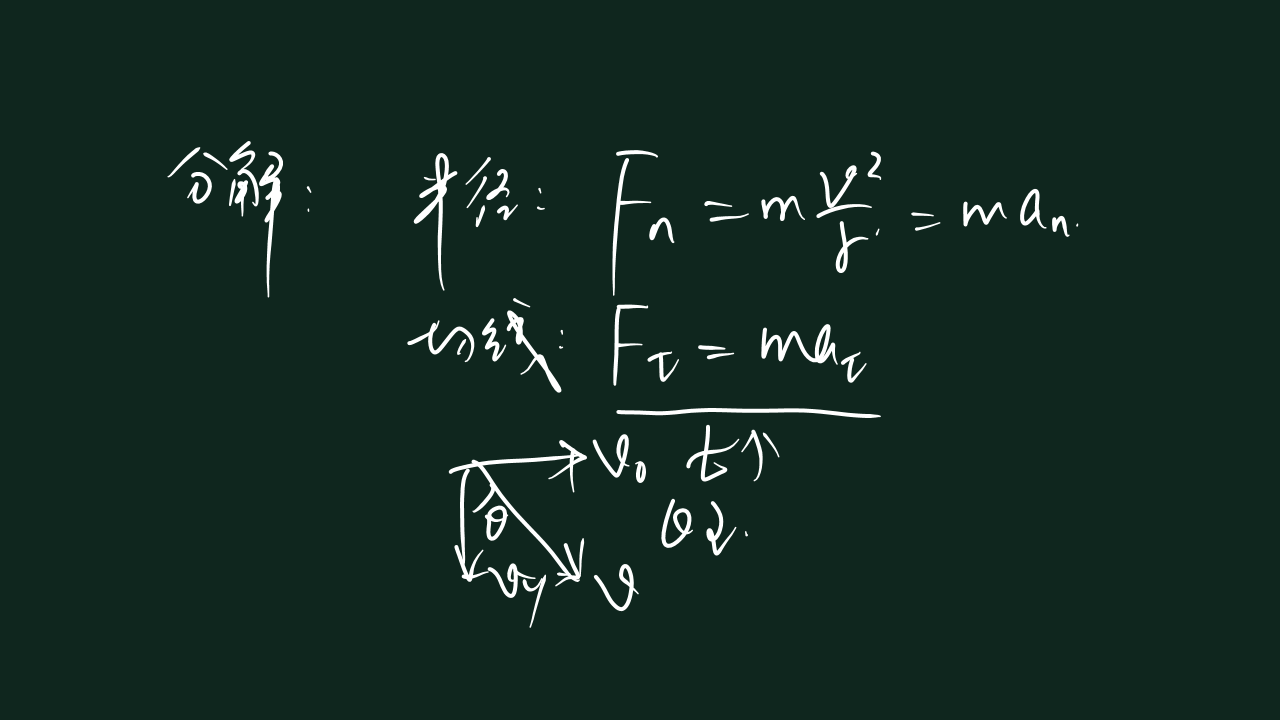 分解: 半径: Fn = m v²/r = m an
切线: Fτ = maτ
v0 t↑
θ θ↓
vy v